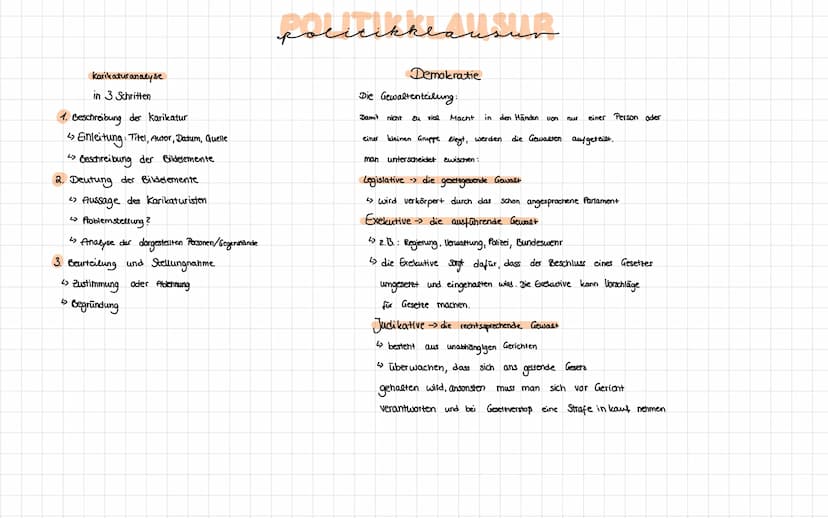 POLITIKKLAUSUR
politikklausur
Karikaturanalyse
in 3 Schritten
1. Beschreibung der Karikatur
↳ Einleitung: Titel, Autor, Datum, Quelle
↳ Beschreibung der Bildelemente
2. Deutung der Bildelemente
↳ Aussage des Karikaturisten
↳ Problemstellung?
↳ Analyse der dargestellten Personen/Gegenstände
3. Beurteilung und Stellungnahme
↳ Zustimmung oder Ablehnung
↳ Begründung
Demokratie
Die Gewaltenteilung:
Damit nicht zu viel Macht in den Händen von nur einer Person oder
einer kleinen Gruppe liegt, werden die Gewalten aufgeteilt.
man unterscheidet zwischen:
Legislative → die gesetzgebende Gewalt
↳ wird verkörpert durch das schon angesprochene Parlament
Exekutive → die ausführende Gewalt
↳ z.B.: Regierung, Verwaltung, Polizei, Bundeswehr
↳ die Exekutive sorgt dafür, dass der Beschluss eines Gesetzes
umgesetzt und eingehalten wird. Die Exekutive kann Vorschläge
für Gesetze machen.
Judikative → die rechtsprechende Gewalt
↳ besteht aus unabhängigen Gerichten
↳ überwachen, dass sich ans geltende Gesetz
gehalten wird, ansonsten muss man sich vor Gericht
verantworten und bei Gesetzverstoß eine Strafe in kauf nehmen